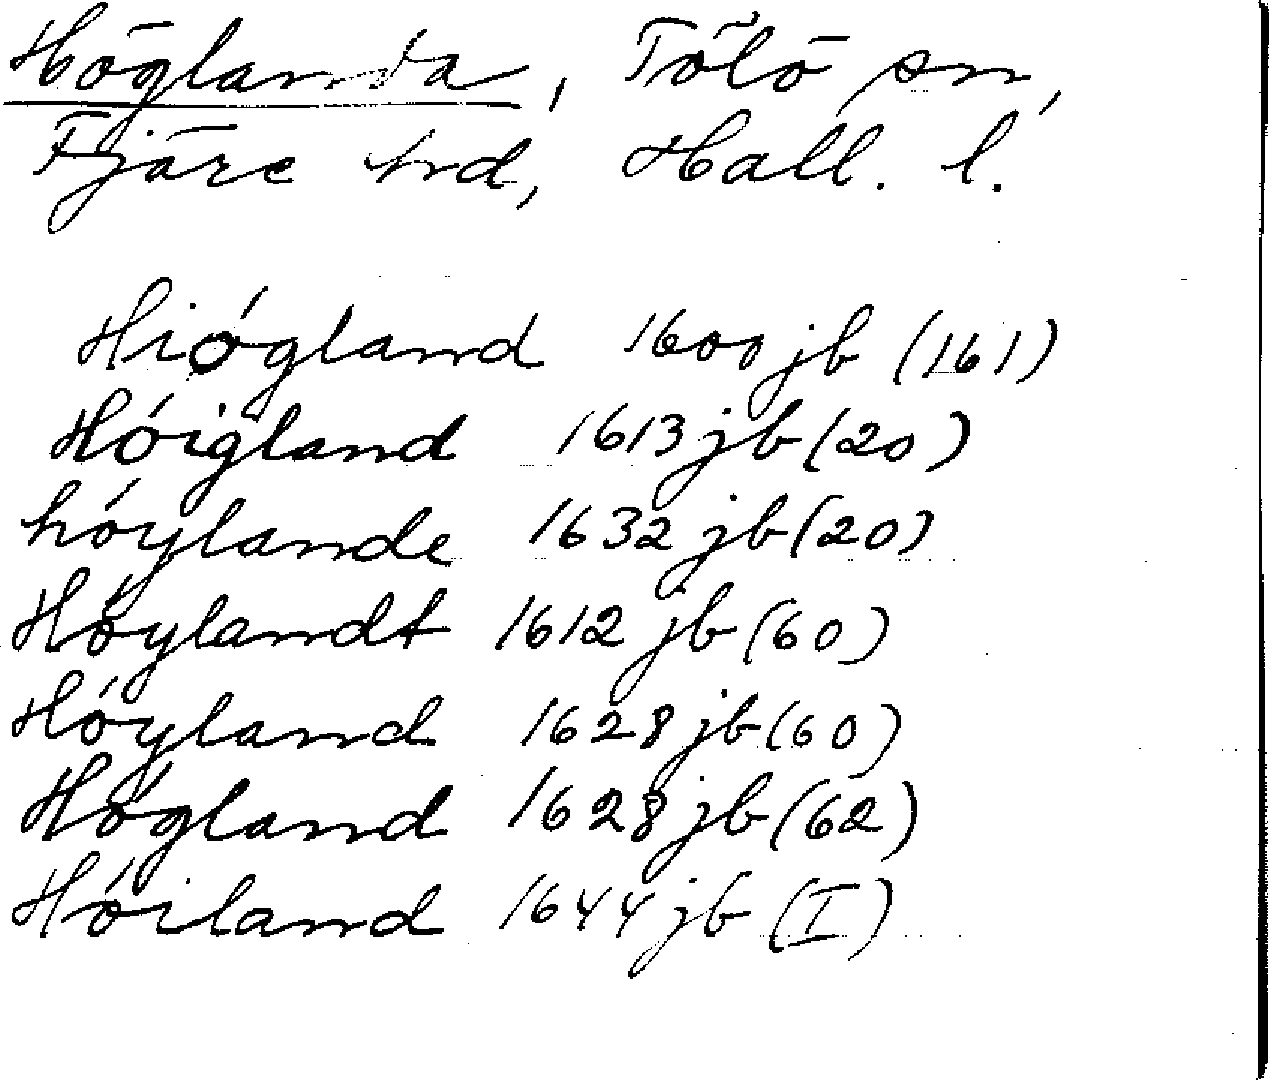 Höglanda, Tölö sn,
Fjäre hd, Hall. l.
Hiógland 1600 jb (161)
Hóigland 1613 jb (20)
hóylande 1632 jb (20)
Hóylandt 1612 jb (60)
Hóyland 1628 jb (60)
Hógland 1628 jb (62)
Hóiland 1644 jb (I)